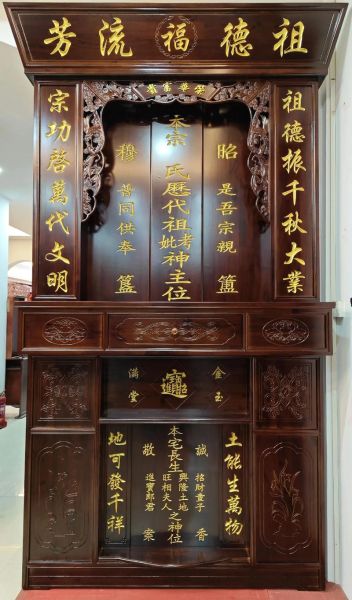 祖德福流芳
榮華富貴
祖德振千秋大業
昭 是吾宗親 簠
本宗 氏歷代祖考妣神主位
穆 普同供奉 簋
宗功啓萬代文明
金玉
招財進寶
滿堂
土能生萬物
誠 招財童子 香
本宅長生興隆土地旺相夫人之神位
敬 進寶郎君 案
地可發千祥